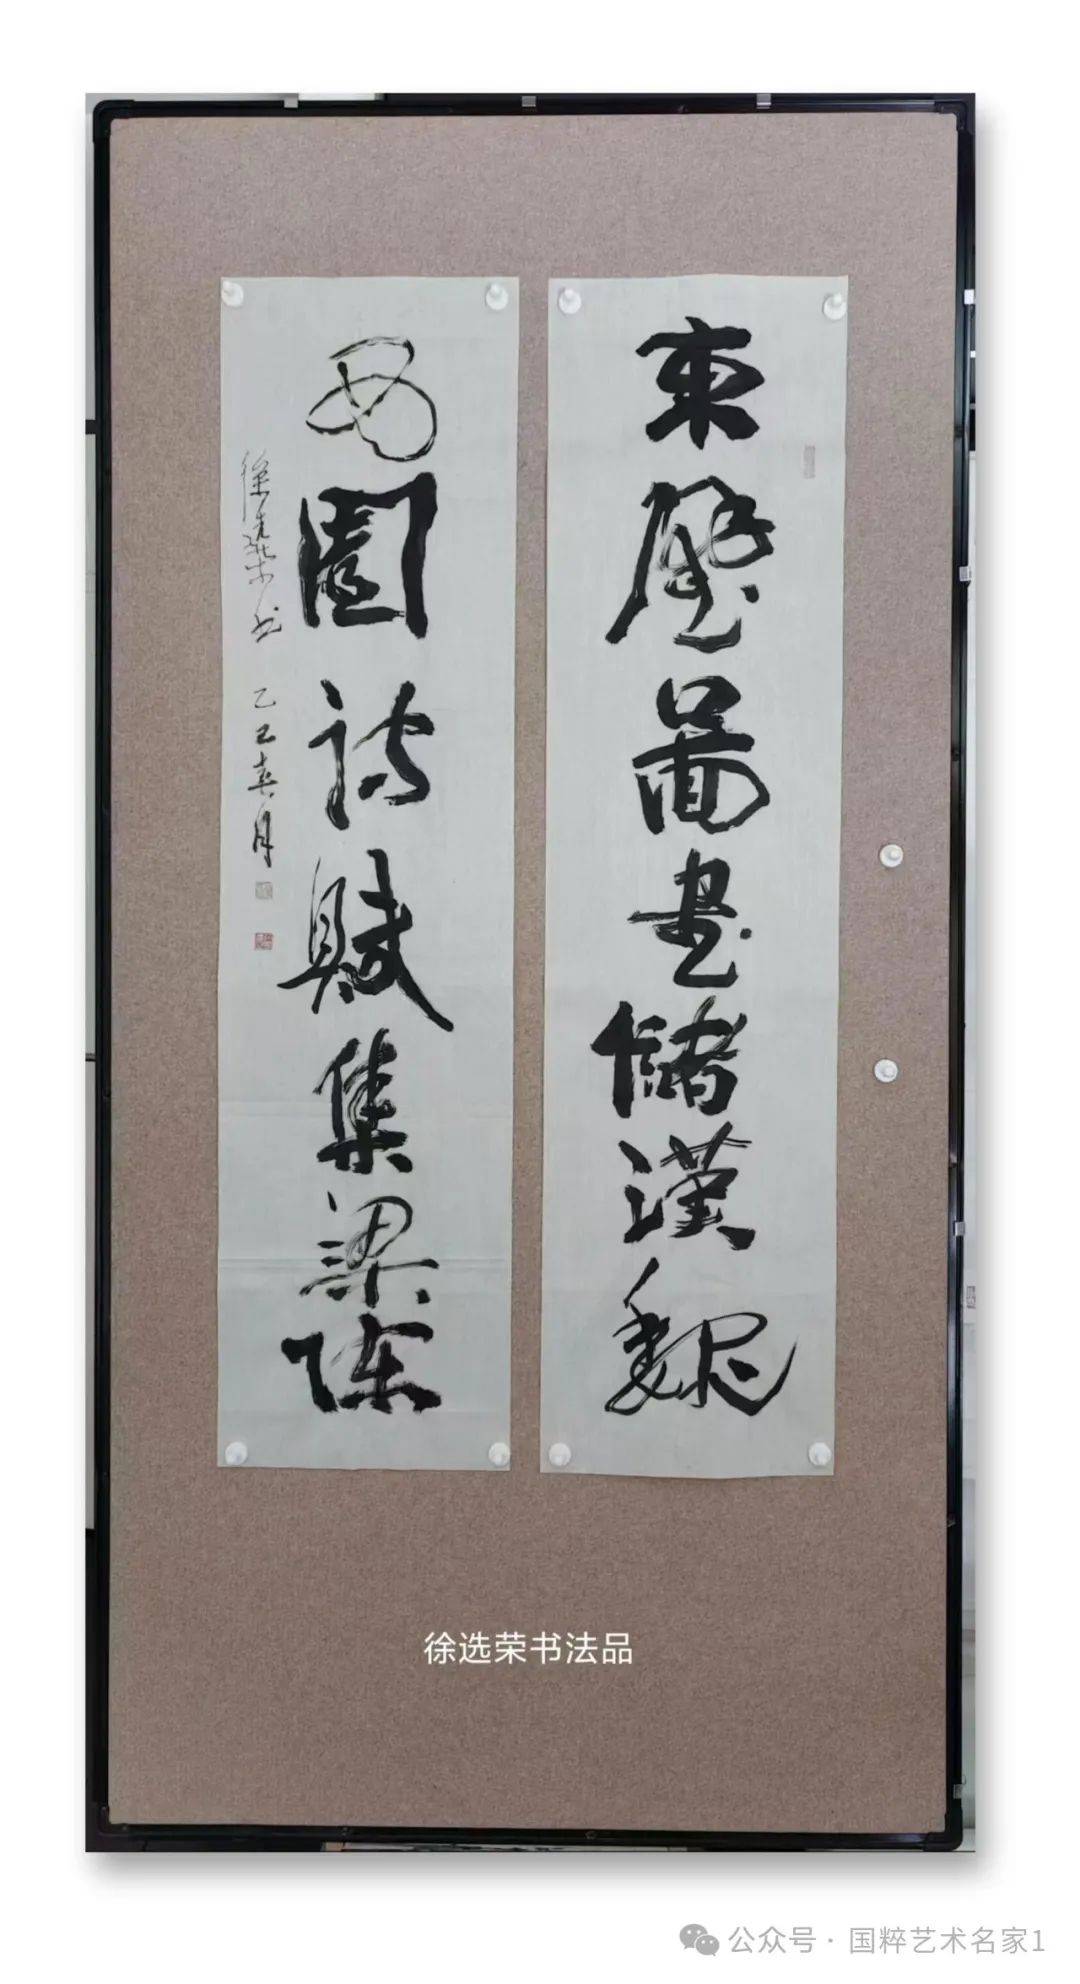 東壁圖書儲漢魏
西園詩賦集梁陳
徐选荣书 乙巳春月
徐选荣书法品
公众号 · 国粹艺术名家1